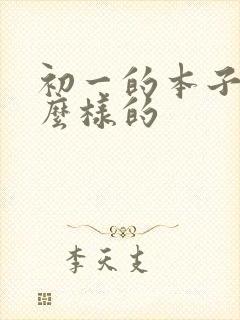 初一的本子
麼樣的
李天支